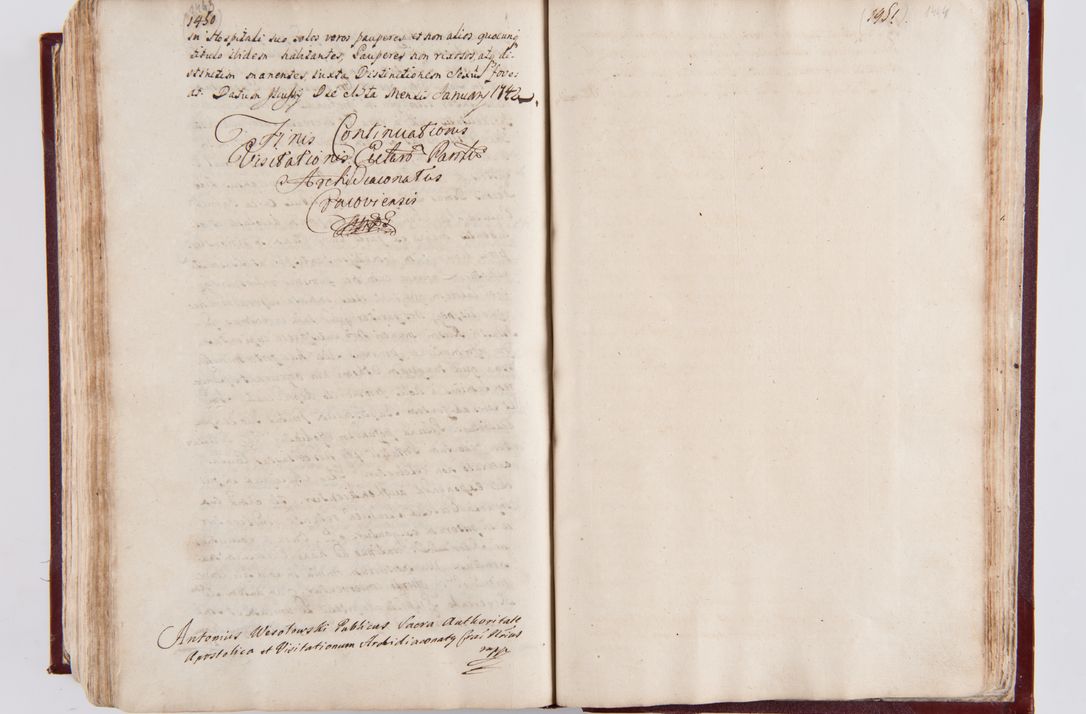 1463
1450
in Hospitali suo solos veros pauperes et non alios quocunq
titulo ibidem habitantes, Pauperes non rixosos, atq di-
stinctim manentes, iuxta Distinctionem Sexus fove-
at. Datum Die Mensis January 1742.
Finis Continuationis
Visitationis
Archidiaconatus
Cracoviensis
Antonius Wesołowski Publicus Sacra Authoritate
Apostolica et Visitationum Archidiaconatq
mpp
(1451)
1464